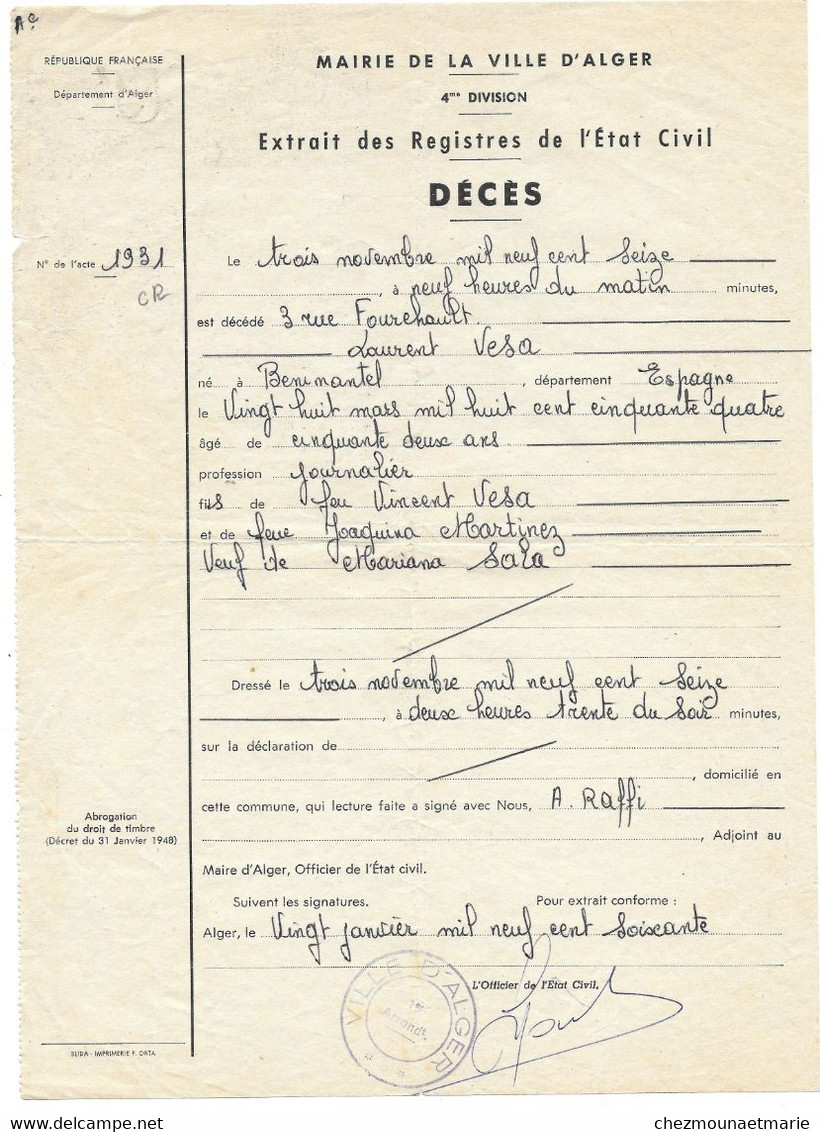 Ac
RÉPUBLIQUE FRANÇAISE
Département d'Alger
MAIRIE DE LA VILLE D'ALGER
4me DIVISION
Extrait des Registres de l'État Civil
DÉCÈS
N° de l'acte 1931
CR
Le trois novembre mil neuf cent seize
, à neuf heures du matin minutes,
est décédé 3 rue Fourchault.
Laurent Vesa
né à Benimantel, département Espagne
le Vingt huit mars mil huit cent cinquante quatre
âgé de cinquante deux ans.
profession journalier
fils de feu Vincent Vesa
et de feue Joaquina Martinez
Veuf de Mariana Sala
Dressé le trois novembre mil neuf cent seize
, à deux heures trente du soir minutes,
sur la déclaration de
, domicilié en
cette commune, qui lecture faite a signé avec Nous, A. Raffi
, Adjoint au
Maire d'Alger, Officier de l'État civil.
Abrogation
du droit de timbre
(Décret du 31 Janvier 1948)
Suivent les signatures. Pour extrait conforme :
Alger, le Vingt janvier mil neuf cent soixante
L'Officier de l'État Civil,
VILLE D'ALGER
1er
Arrondt.
BLIDA - IMPRIMERIE F. OATA
chezmounaetmarie